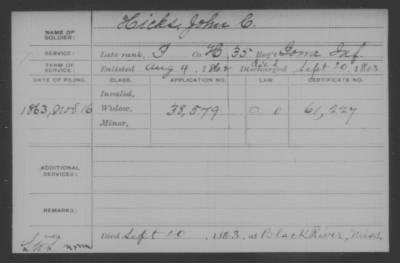 NAME OF SOLDIER: Hicks, John C.
SERVICE: Late rank, P Co. H, 35 Reg't Iowa Inf
TERM OF SERVICE: Enlisted Aug 4, 1862 Discharged Sept 10, 1863
DATE OF FILING. CLASS. APPLICATION NO. LAW. CERTIFICATE NO.
Invalid,
1863, Nov 16 Widow, 38,579 O O 61,227
Minor,
ADDITIONAL SERVICES:
REMARKS:
Died Sept 10, 1863, at Black River, Miss.